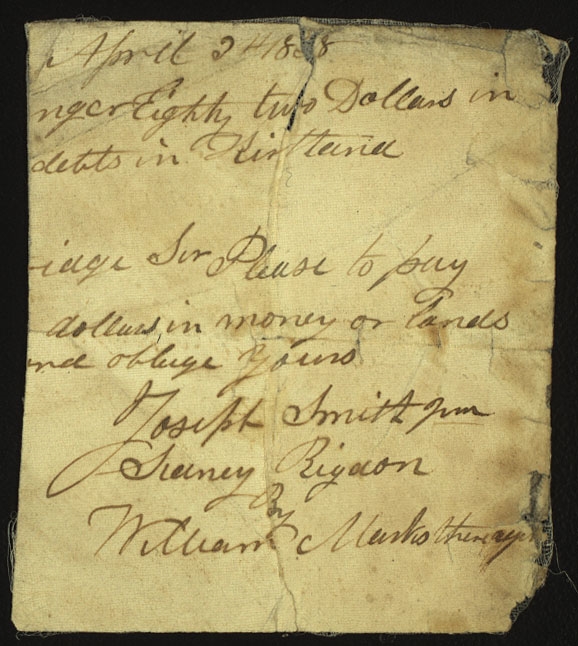 April 24 1838
nger Eighty two Dollars in
debts in Kirtland
idge Sir Please to pay
dollars in money or lands
nd obluge yours
Joseph Smith Jun
Sidney Rigdon
By
William Marks their agent